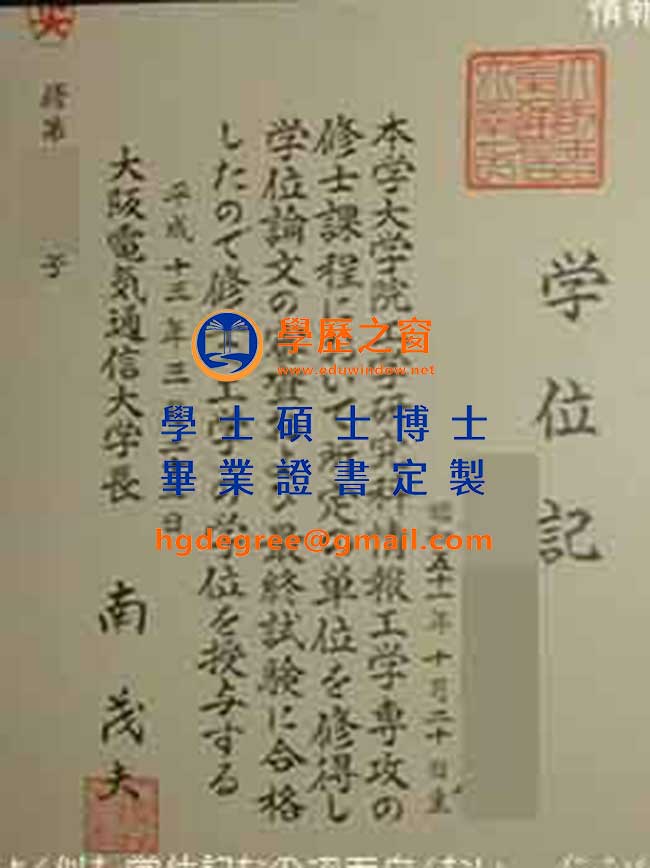 情報
学位記
五十一年十月二十日生
本学大学院工学研究科情報工学専攻の
修士課程において所定の単位を修得し
学位論文の審査及び最終試験に合格
したので修士工学の学位を授与する
平成十三年三月 日
大阪電気通信大学長 南茂夫
修第 号
學歷之窗
www.eduwindow.net
學士碩士博士
畢業證書定製
hgdegree@gmail.com